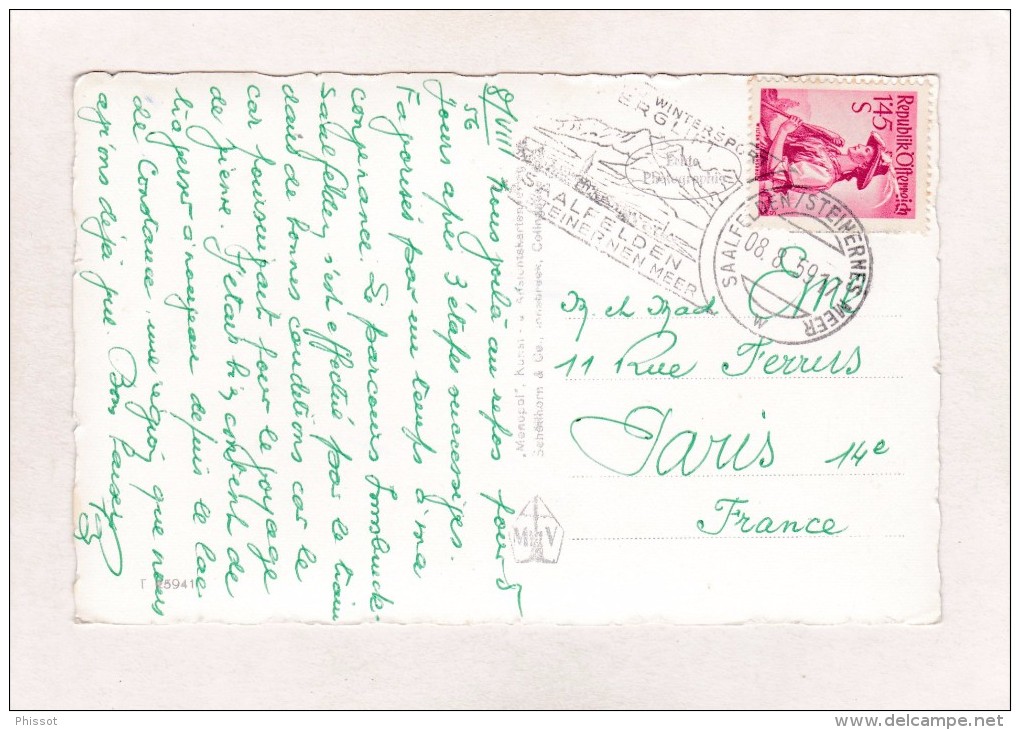 8/VIII nous voilà au repos pour 5
56
jours après 3 étapes successives.
Favorisés par un temps à ma
convenance. Le parcours Innsbruck-
Saalfelden s'est effectué par le train
dans de bonnes conditions car le
car fournissait pour le voyage
de Vienne. J'étais content de
traverser à nouveau depuis le lac
de Constance une région que nous
avions déjà vue. Bons Baisers
WINTERSPORT
ERGLIFT
Photographie
SAALFELDEN
STEINERNEN MEER
SAALFELDEN/STEINERNES MEER
08.8.59
Republik Österreich
1'45
S
M et Mad
11 Rue Ferrus
Paris 14e
France
"Monopol", Kunst- u. Ansichtskarten
Schöllhorn & Co., Innsbruck,
M V
T 25941
Phissot
delcampe.net